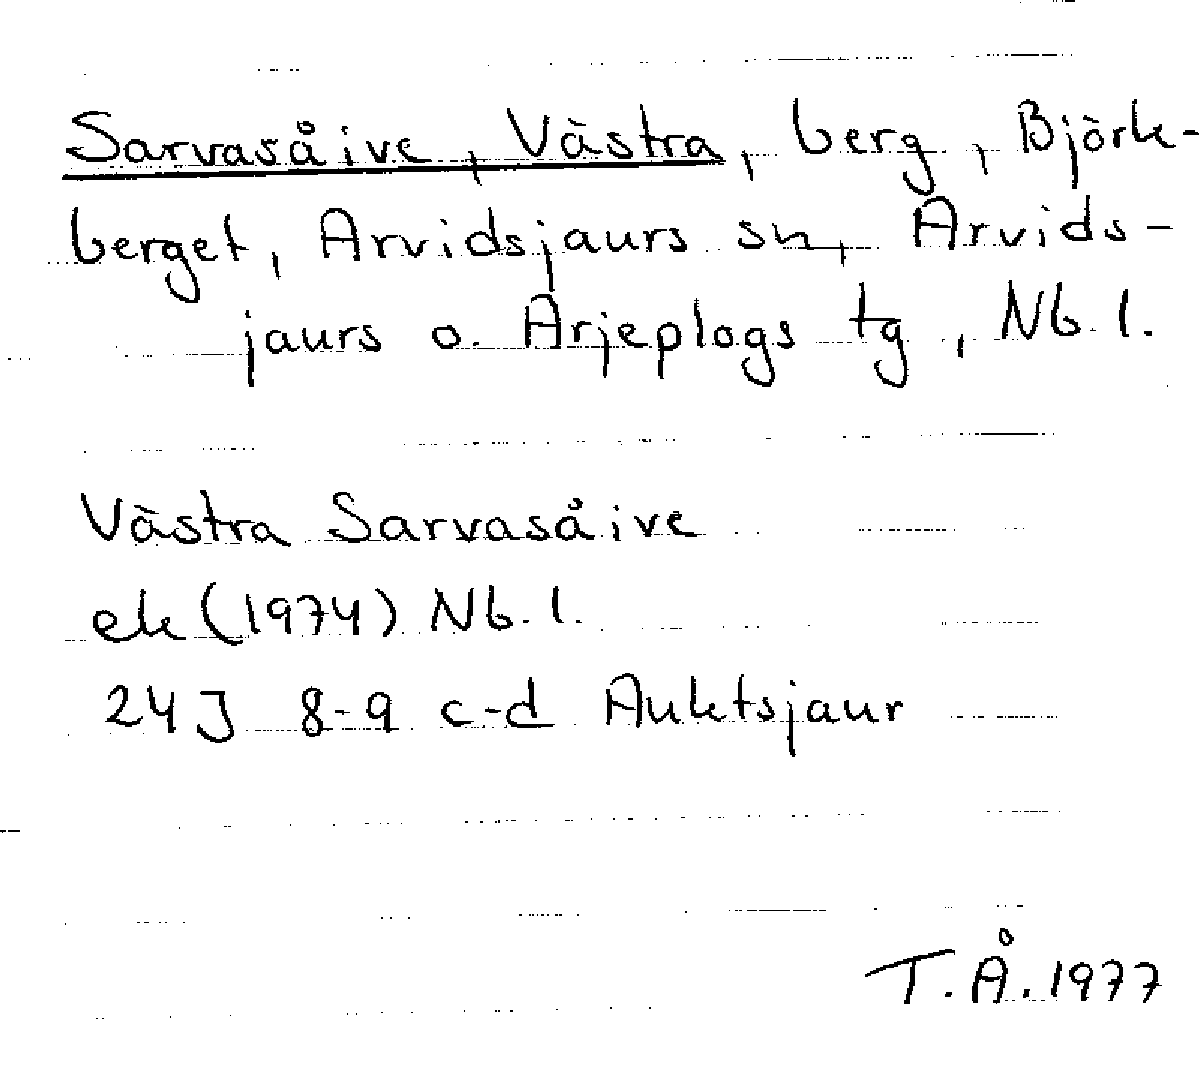 Sarvasåive, Västra, berg, Björk-
berget, Arvidsjaurs sn, Arvids-
jaurs o. Arjeplogs tg, Nb. l.
Västra Sarvasåive
ek (1974) Nb. l.
24J 8-9 c-d Auktsjaur
T.Å. 1977